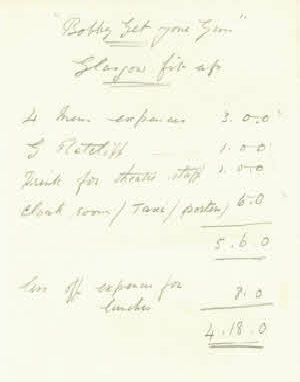 "Bobby Get your Gun"
Glasgow fit up
4 Mens expenses 3.0.0
G Ratcliff 1.0.0
Drink for theatre staff 1.0.0
Cloak room/Taxi/porters/ 6.0
5.6.0
less off expenses for lunches 8.0
4.18.0